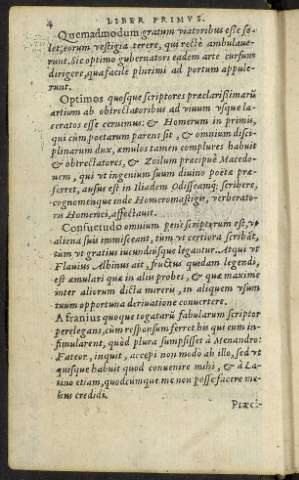 4 LIBER PRIMVS.
Quemadmodum gratum viatoribus esse so-
let, eorum vestigia terere, qui rectè ambulaue-
runt. Sic optimo gubernatori eadem arte cursum
dirigere, qua facilè plurimi ad portum appule-
runt.
Optimos quosque scriptores præclarißimarũ
artium ab obtrectatoribus ad viuum vsque la-
ceratos esse cernimus: & Homerum in primis,
qui cùm poetarum parens sit, & omnium disci-
plinarum dux, æmulos tamen complures habuit
& obtrectatores, & Zoilum præcipuè Macedo-
nem, qui vt ingenium suum diuino poetæ præ-
ferret, ausus est in Iliadem Odisseamq; scribere,
cognomenque inde Homeromastigis, verberato-
ris Homerici, affectauit.
Consuetudo omnium penè scriptorum est, vt
aliena suis immisceant, tum vt certiora scribãt,
tum vt gratius iucundiusque legantur. Atqui vt
Flauius Albinus ait, fructus quidam legendi,
est æmulari quæ in alijs probes, & quæ maximè
inter aliorum dicta mireris, in aliquem vsum
tuum opportuna deriuatione conuertere.
Afranius quoque togatarũ fabularum scriptor
perelegans, cùm responsum ferret his qui eum in-
simularent, quòd plura sumpsisset à Menandro:
Fateor, inquit, accepi non modò ab illo, sed vt
quisque habuit quod conuenire mihi, & à La-
tino etiam, quodcumque me non posse facere me-
lius credidi.
Præci-